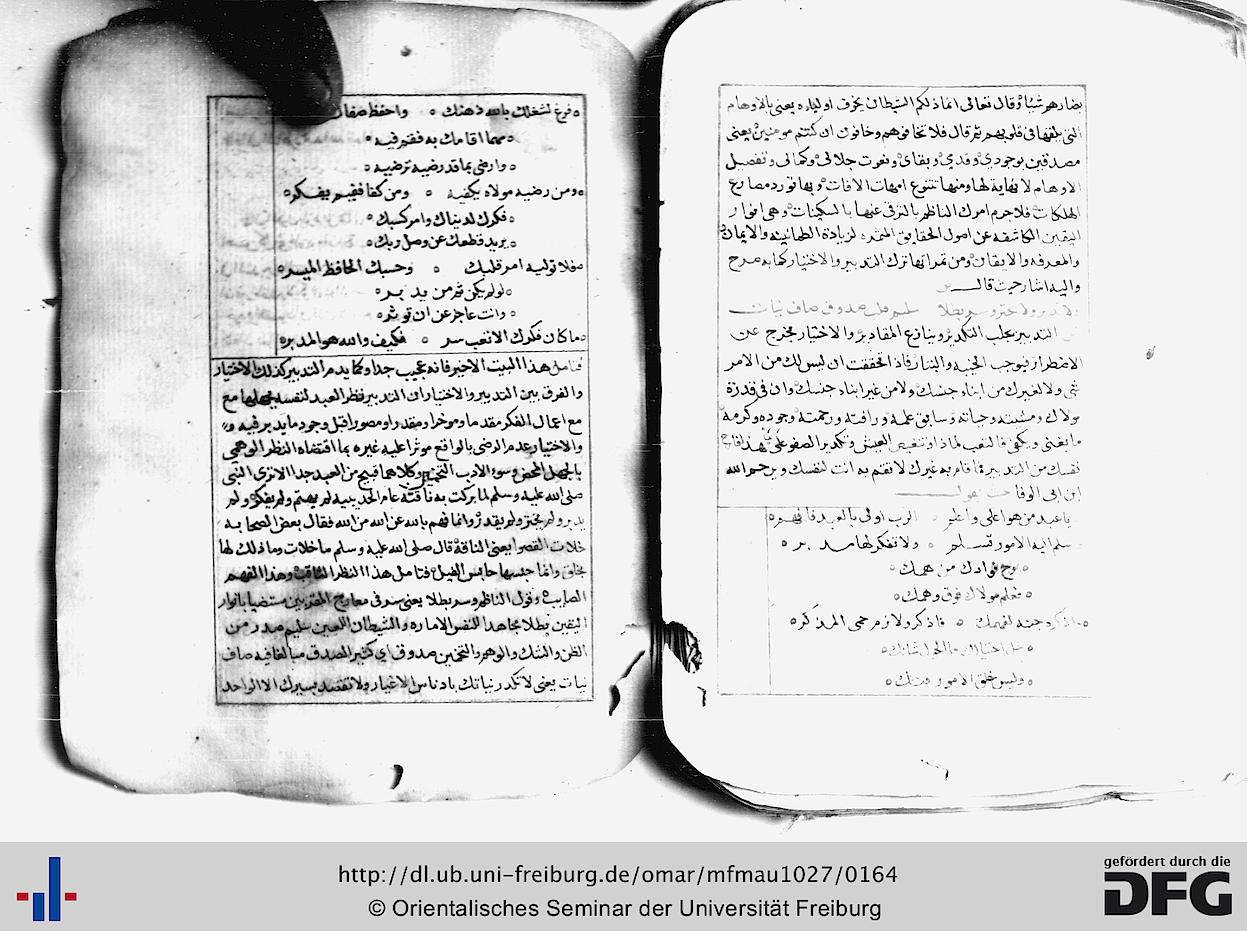 بضارهم شيئا وقال تعالى انما ذلكم الشيطان يخوف اولياءه يعنى بالاوهام
التى يلقيها فى قلوبهم ثم قال فلا تخافوهم وخافون ان كنتم مومنين يعنى
مصدقين بوجودي وقدمي وبقاي ونعوت جلالي وكمالي وتفصيل
الاوهام لا نهاية لها ومنها تتنوع امهات الافات وبها تورد مصارع
الهلكات فلا جرم امرك الناظم بالترقى عنها بالسكينات وهى انوار
اليقين الكاشفه عن اصول الحقايق لزيادة الطمانينه والايمان
والمعرفه والايقان ومن ثمراتها ترك التدبير والاختيار كما به صرح
واليه اشار حيث قال
لا تدبر ولا تختر وسر بطلا سليم قلب صدوق صاف نيات
التدبير يجلب التكدير وينازع المقادير والاختيار مخرج عن
الاضطرار فاذا تحققت ان ليس لك من الامر
شي ولا لغيرك من ابناء جنسك ولا من غير ابناء جنسك وان فى قدرة
مولاك ومشيئته وحياته وسابق علمه ورافته ورحمته وجوده وكرمه
ما يغنى ويكفى فالتعب لماذا وتنغيص العيش وتكدير الصفو على
نفسك من التدبير فما قام به غيرك لا تقم به انت لنفسك ويرحم الله
ابن ابى الوفا حيث يقول
يا عبد من هو اعلى واعلم الرب اولى بالعبد فافهم
سلم اليه الامور تسلم ولا تفكر لها مدبر
روح فوادك من همك
تعلم مولاك فوق وهمك
فاذكر ولازم حمى المذكره
وليس خلق الامور فنك
فرغ لشغلك بالله ذهنك واحفظ صفات
مهما اقامك به فقم فيه
وارضى بما قد رضيه ترضيه
ومن رضيه مولاه يكفيه ومن كفا فقيم يفكر
فكرك لدنياك وامر كسبك
يريد قطعك عن وصل ربك
فلا توليه امر قلبك وحسبك الحافظ الميسر
لو لم يكن ثم من يدبر
وانت عاجز عن ان توثر
ما كان فكرك الا تعب سر فكيف والله هو المدبر
فتامل هذا البيت الاخير فانه عجيب جدا وكما يذم التدبير كذلك الاختيار
والفرق بين التدبير والاختيار ان التدبير نظر العبد لنفسه بجهلها مع
مع اعمال الفكر مقدما وموخرا ومقدرا ومصورا قبل وجود ما يدبر فيه
والاختيار عدم الرضى بالواقع موثرا عليه غيره بما اقتضاه النظر الوهمى
بالجهل المحض وسوء الادب وكلاهما قبيح من العبد جدا الا ترى النبى
صلى الله عليه وسلم لما بركت به ناقته عام الحديبيه لم يهتم ولم يفكر ولم
يدبر ولم يختر ولم يقدر وانما فهم بالله عن الله من الله فقال بعض الصحابه
خلات القصوا يعنى الناقة قال صلى الله عليه وسلم ما خلات وما ذلك لها
بخلق وانما حبسها حابس الفيل فتامل هذا النظر الثاقب وهذا الفهم
الصايب وقول الناظم وسر بطلا يعنى سر فى معارج المقربين مستضيا بانوار
اليقين بطلا مجاهدا للنفس الاماره والشيطان اللعين سليم صدر من
الظن والشك والوهم والتخمين صدوق اي كثير الصدق مبالغا فيه صاف
نيات يعنى لا تكدر نياتك بادناس الاغيار ولا تقصد بسيرك الا الواحد
http://dl.ub.uni-freiburg.de/omar/mfmau1027/0164
© Orientalisches Seminar der Universität Freiburg
gefördert durch die
DFG